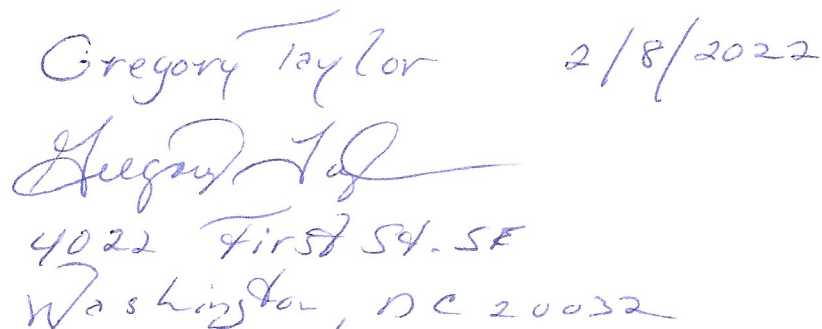 Gregory Taylor 2/8/2022
Gregory Taylor
4022 First St. SE
Washington, DC 20032